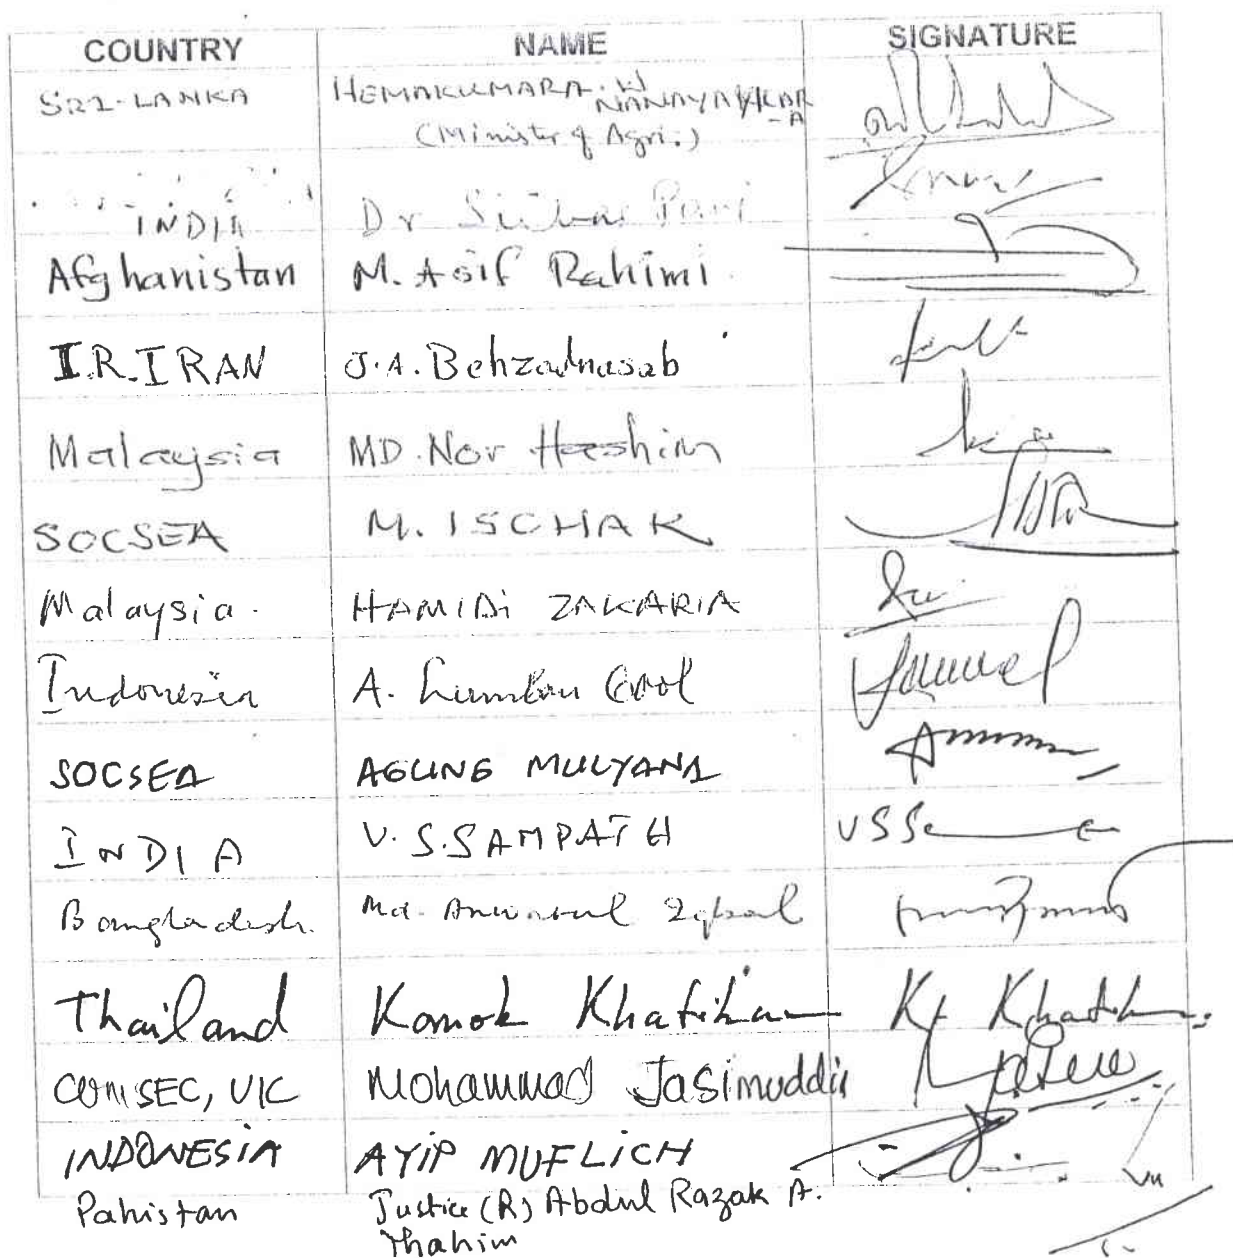 COUNTRY NAME SIGNATURE
SRI-LANKA HEMAKUMARA. W
NANAYAKKAR
-A
(Minister of Agri.)
INDIA Dr
Afghanistan M. Asif Rahimi
I.R.IRAN J.A. Behzadnasab
Malaysia MD. Nor Hashim
SOCSEA M. ISCHAK
Malaysia. HAMIDi ZAKARIA
Indonesia A. Lumban Gaol
SOCSEA AGUNG MULYANA
INDIA V.S.SAMPATH VSS
Bangladesh. Md. Anwarul Iqbal
Thailand Kamok Khatikan
COMSEC, UK Mohammad Jasimuddin
INDONESiA AYiP MUFLiCH
Pakistan Justice (R) Abdul Razak A.
Thahim